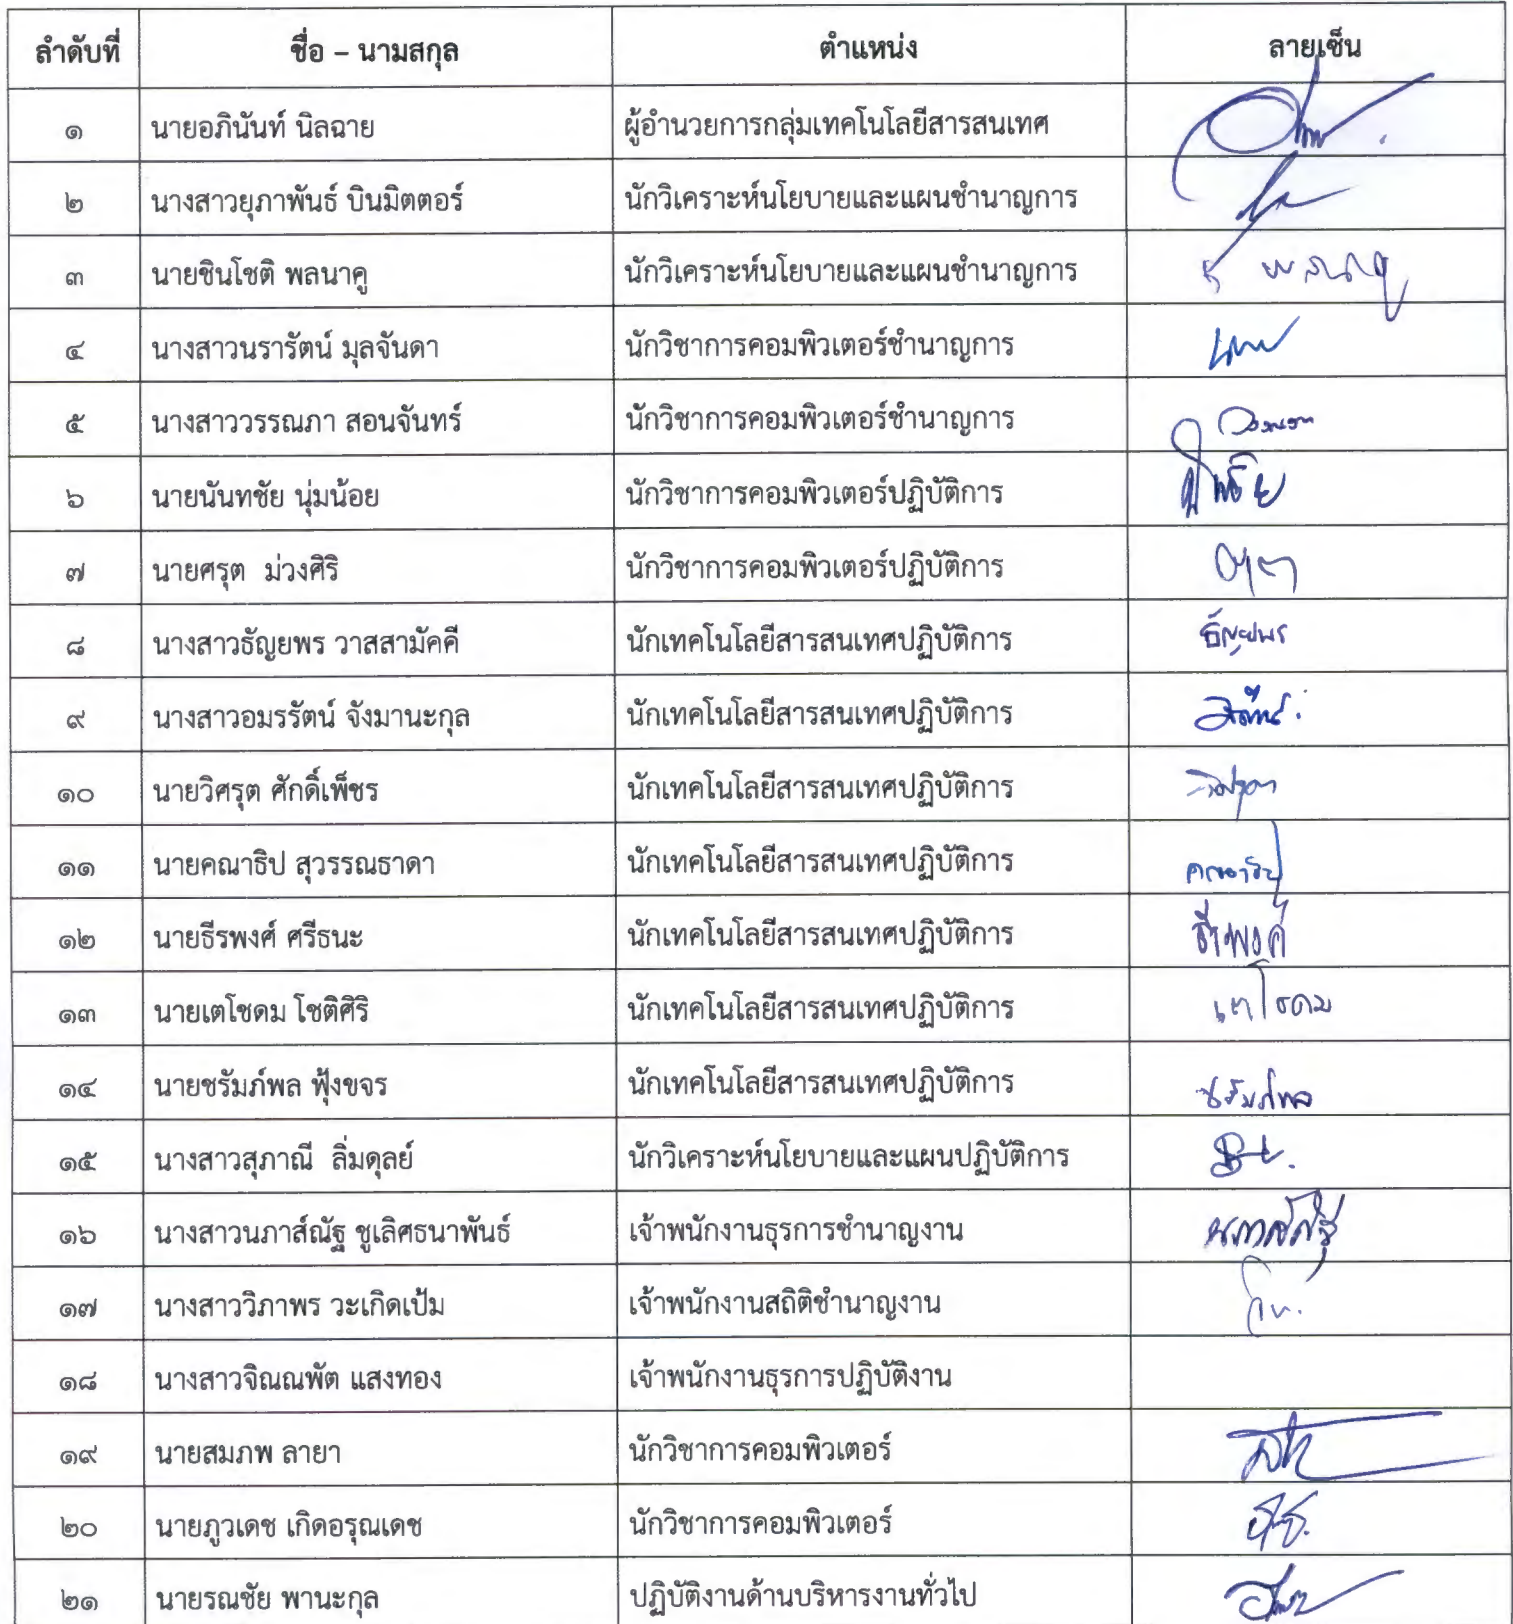 ลำดับที่ ชื่อ – นามสกุล ตำแหน่ง ลายเซ็น
๑ นายอภินันท์ นิลฉาย ผู้อำนวยการกลุ่มเทคโนโลยีสารสนเทศ
๒ นางสาวยุภาพันธ์ บินมิตตอร์ นักวิเคราะห์นโยบายและแผนชำนาญการ
๓ นายชินโชติ พลนาคู นักวิเคราะห์นโยบายและแผนชำนาญการ
๔ นางสาวนรารัตน์ มุลจันดา นักวิชาการคอมพิวเตอร์ชำนาญการ
๕ นางสาววรรณภา สอนจันทร์ นักวิชาการคอมพิวเตอร์ชำนาญการ
๖ นายนันทชัย นุ่มน้อย นักวิชาการคอมพิวเตอร์ปฏิบัติการ
๗ นายศรุต ม่วงศิริ นักวิชาการคอมพิวเตอร์ปฏิบัติการ
๘ นางสาวธัญยพร วาสสามัคคี นักเทคโนโลยีสารสนเทศปฏิบัติการ ธัญยพร
๙ นางสาวอมรรัตน์ จังมานะกุล นักเทคโนโลยีสารสนเทศปฏิบัติการ
๑๐ นายวิศรุต ศักดิ์เพ็ชร นักเทคโนโลยีสารสนเทศปฏิบัติการ
๑๑ นายคณาธิป สุวรรณธาดา นักเทคโนโลยีสารสนเทศปฏิบัติการ คณาธิป
๑๒ นายธีรพงศ์ ศรีธนะ นักเทคโนโลยีสารสนเทศปฏิบัติการ ธีรพงศ์
๑๓ นายเตโชดม โชติศิริ นักเทคโนโลยีสารสนเทศปฏิบัติการ เตโชดม
๑๔ นายชรัมภ์พล ฟุ้งขจร นักเทคโนโลยีสารสนเทศปฏิบัติการ ชรัมภ์พล
๑๕ นางสาวสุภาณี ลิ่มดุลย์ นักวิเคราะห์นโยบายและแผนปฏิบัติการ
๑๖ นางสาวนภาส์ณัฐ ชูเลิศธนาพันธ์ เจ้าพนักงานธุรการชำนาญงาน นภาส์ณัฐ
๑๗ นางสาววิภาพร วะเกิดเป้ม เจ้าพนักงานสถิติชำนาญงาน
๑๘ นางสาวจิณณพัต แสงทอง เจ้าพนักงานธุรการปฏิบัติงาน
๑๙ นายสมภพ ลายา นักวิชาการคอมพิวเตอร์
๒๐ นายภูวเดช เกิดอรุณเดช นักวิชาการคอมพิวเตอร์
๒๑ นายรณชัย พานะกุล ปฏิบัติงานด้านบริหารงานทั่วไป